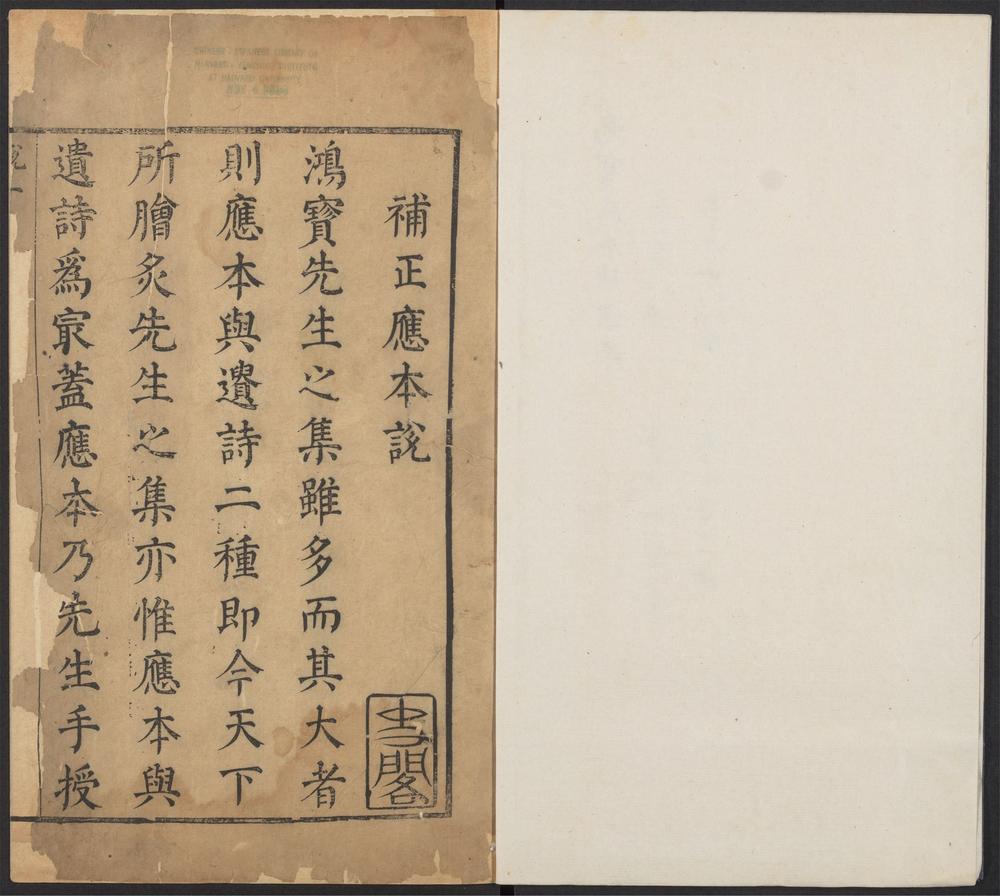 補正應本說
鴻寶先生之集雖多而其大者
則應本與遺詩二種即今天下
所膾炙先生之集亦惟應本與
遺詩爲冣蓋應本乃先生手授
閣
CHINESE - JAPANESE LIBRARY OF
HARVARD - YENCHING INSTITUTE
AT HARVARD UNIVERSITY